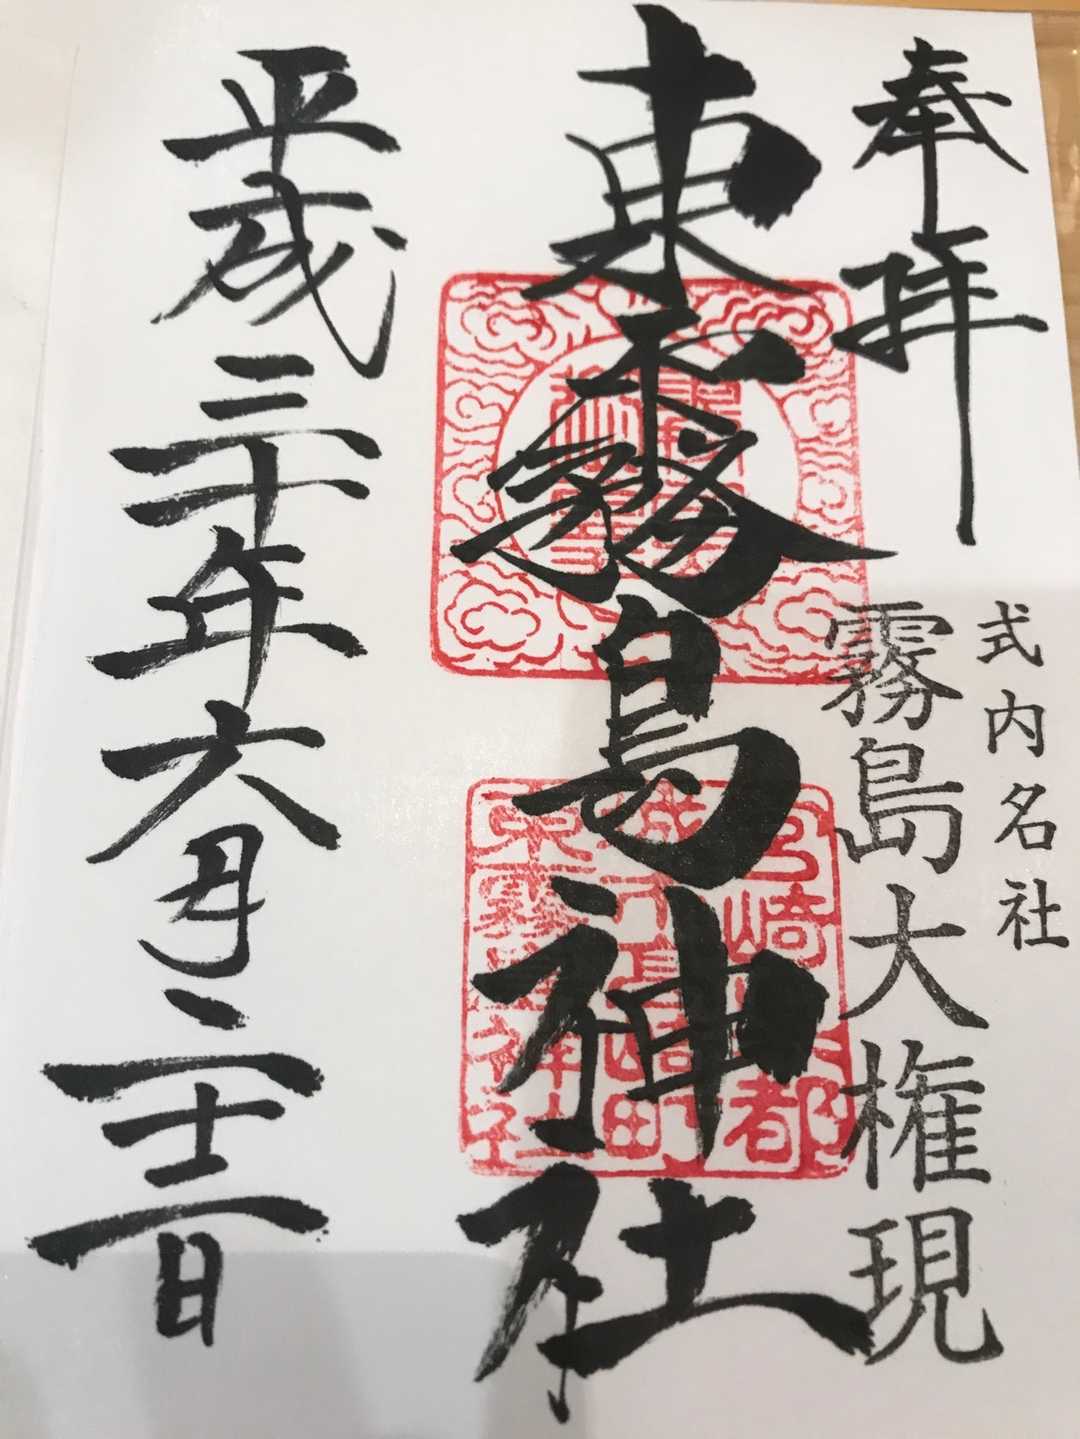 奉拝
式内名社
霧島大権現
東霧島神社
平成三十年六月二十二日
宮崎県都
城市高崎町
東霧島神社